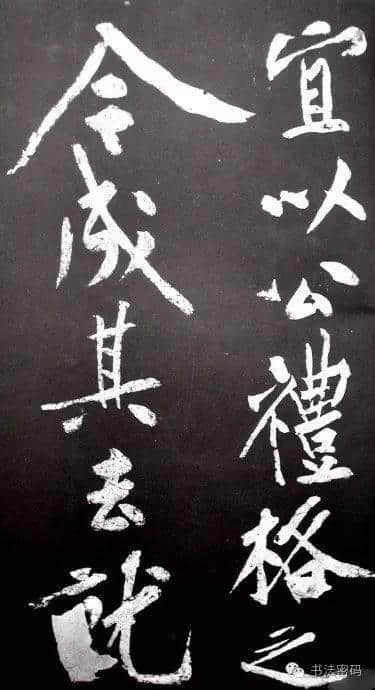 宜以公禮格之
令咸其去就
书法密码